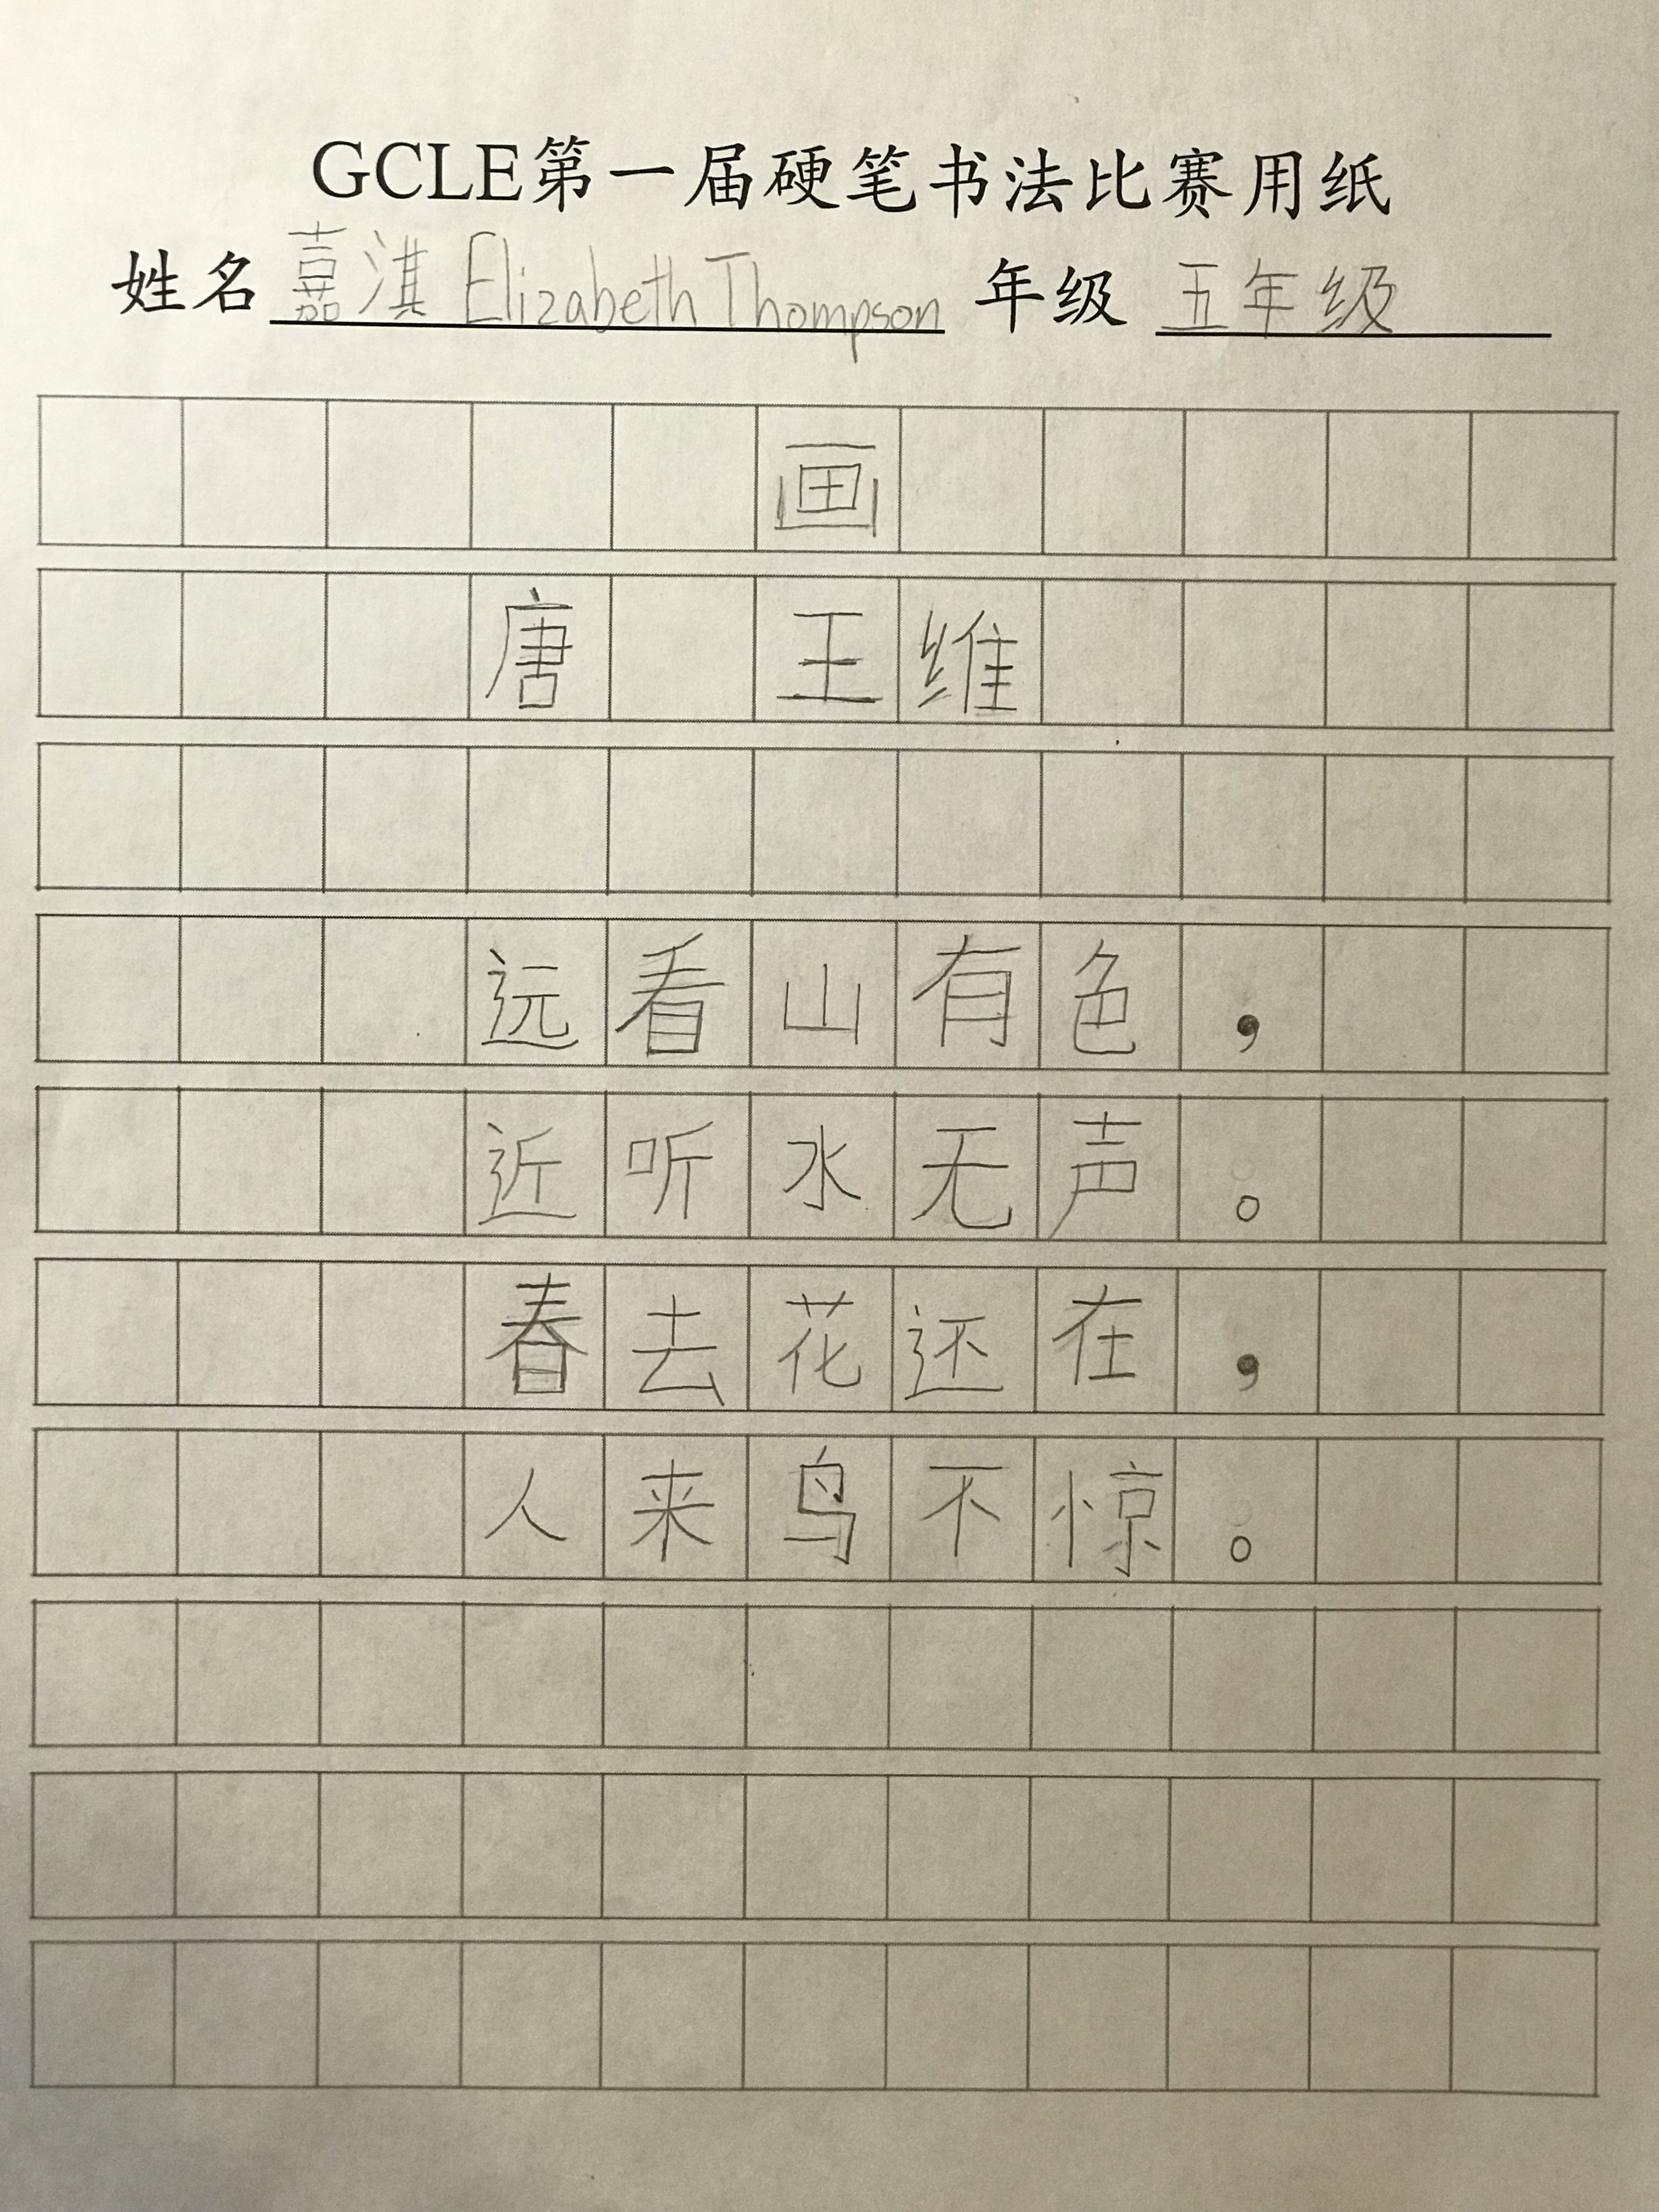 GCLE第一届硬笔书法比赛用纸
姓名 嘉淇 Elizabeth Thompson 年级 五年级
画
唐 王维
远看山有色，
近听水无声。
春去花还在，
人来鸟不惊。